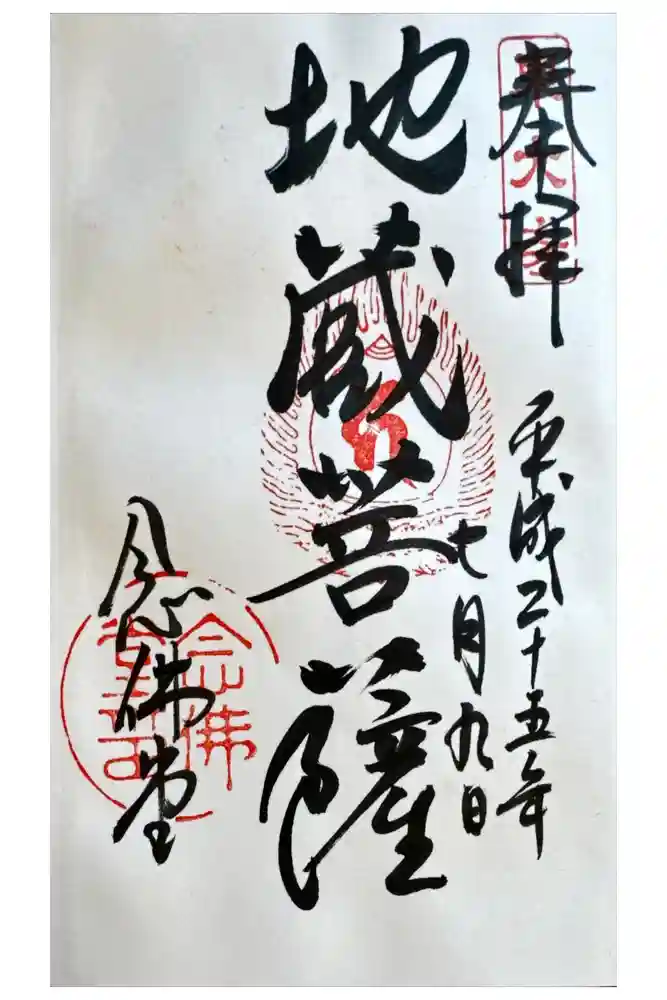 奉拝
平成二十五年
七月九日
地蔵菩薩
念佛堂